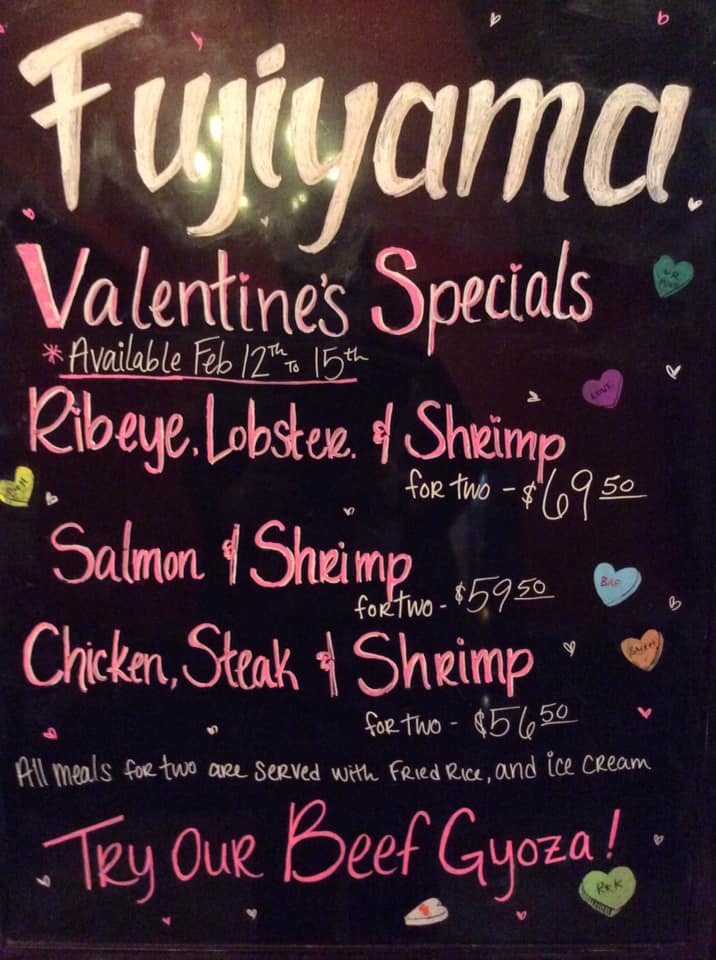 Fujiyama
Valentine's Specials
*Available Feb 12th to 15th
Ribeye, Lobster, & Shrimp
for two - $69 50
Salmon & Shrimp
for two - $59 50
Chicken, Steak & Shrimp
for two - $56 50
All meals for two are served with Fried Rice, and ice cream
Try Our Beef Gyoza!